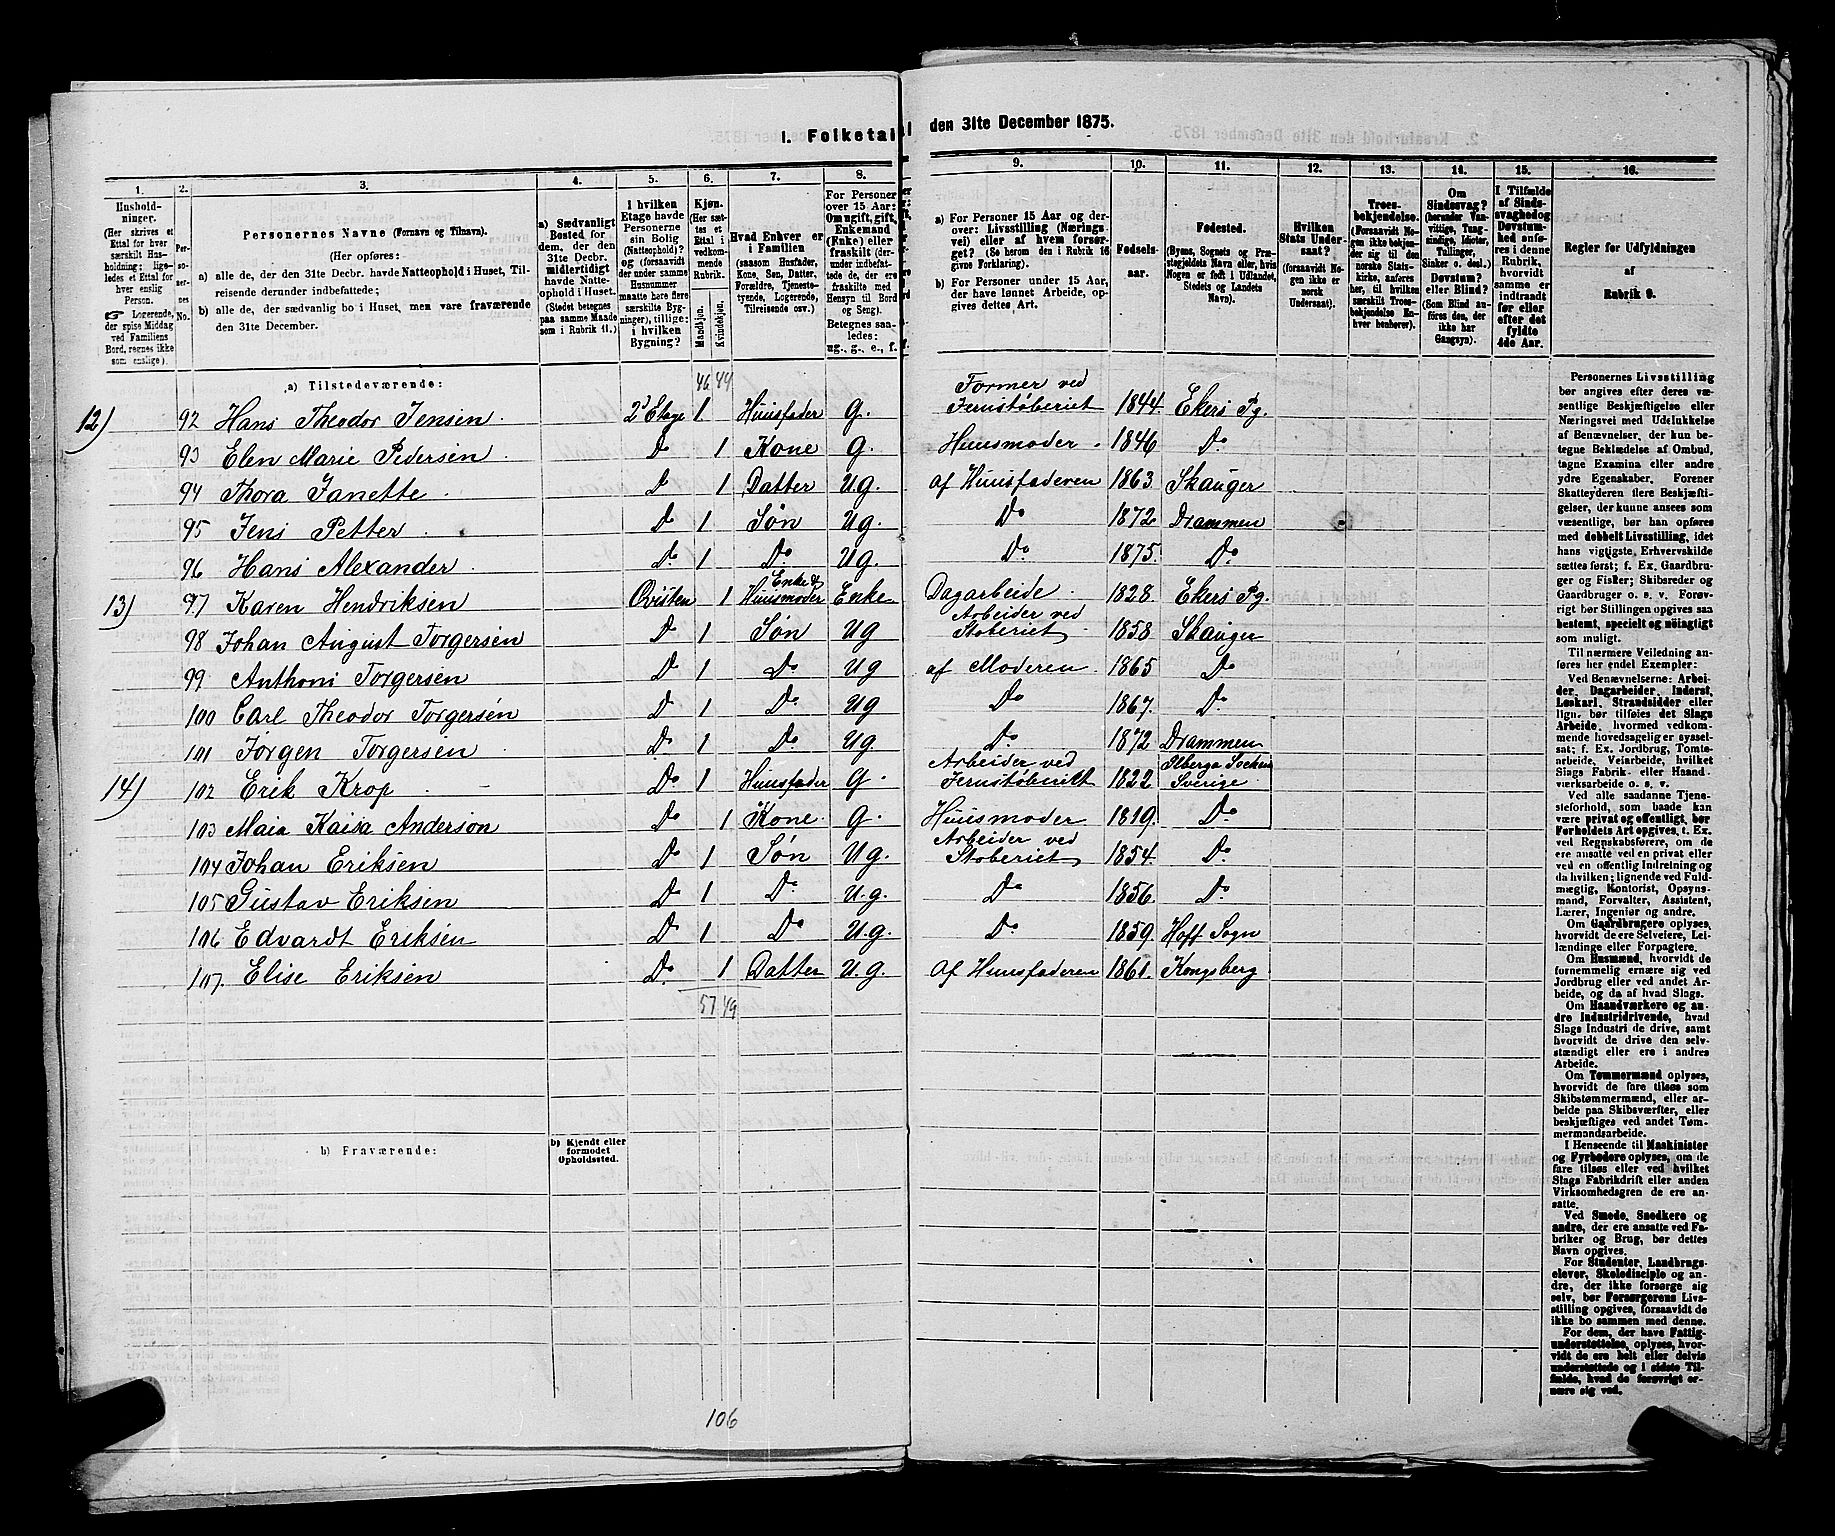 1. Folketal
den 31te December 1875.
1. 2. 3. 4. 5. 6. 7. 8. 9. 10. 11. 12. 13. 14. 15. 16.
Husholdninger.
(Her skrives et Ettal for hver særskilt Husholdning; ligeledes et Ettal for hver enslig Person.
☞ Logerende, der spise Middag ved Familiens Bord, regnes ikke som enslige).
Personernes No.
Personernes Navne (Fornavn og Tilnavn).
(Her opføres:
a) alle de, der den 31te Decbr. havde Natteophold i Huset, Tilreisende derunder indbefattede;
b) alle de, der sædvanlig bo i Huset, men vare fraværende den 31te December.
a) Sædvanligt Bosted for dem, der den 31te Decbr. midlertidigt havde Natteophold i Huset. (Stedet betegnes paa samme Maade som i Rubrik 11.)
I hvilken Etage havde Personerne sin Bolig (Natteophold)? og (forsaavidt der under samme Husnummer maatte høre flere særskilte Bygninger), tillige: i hvilken Bygning?
Kjøn.
(Her sættes et Ettal i vedkommende Rubrik.
Mandkjøn.
Kvindekjøn.
Hvad Enhver er i Familien
(saasom Husfader, Kone, Søn, Datter, Forældre, Tjenestetyende, Logerende, Tilreisende osv.)
For Personer over 15 Aar: Om ugift, gift, Enkemand (Enke) eller fraskilt (derunder indbefattede, de ere fraskilte med Hensyn til Bord og Seng).
Betegnes saaledes: ug., g., e., f.
a) For Personer 15 Aar og derover: Livsstilling (Næringsvei) eller af hvem forsørget? (Se herom den i Rubrik 16 givne Forklaring).
b) For Personer under 15 Aar, der have lønnet Arbeide, opgives dettes Art.
Fødselsaar.
Fødested.
(Byens, Sognets og Præstegjeldets Navn eller, hvis Nogen er født i Udlandet, Stedets og Landets Navn).
Hvilken Stats Undersaat?
(forsaavidt Nogen ikke er norsk Undersaat).
Troesbekjendelse.
(Forsaavidt Nogen ikke bekjender sig til den norske Statskirke, anføres her, til hvilken særskilt Troesbekjendelse Enhver henhører).
Om Sindssvag?
(herunder Vanvittige, Tungsindige, Idioter, Tullinger, Sinker o. desl.)
Døvstum? eller Blind?
(Som Blind anføres den, der ikke har Gangsyn).
I Tilfælde af Sindssvaghed og Døvstumhed anføres i denne Rubrik, hvorvidt samme er indtraadt før eller efter det fyldte 4de Aar.
Regler for Udfyldningen af Rubrik 9.
a) Tilstedeværende: 46 44
12) 92 Hans Theodor Jensen. 2d Etage 1 Huusfader g. Former ved Jernstøberiet 1844. Ekers Pg.
93 Elen Marie Pedersen Do 1 Kone g. Huusmoder. 1846 Do
94 Thora Janette Do 1 Datter Ug. af Huusfaderen 1863 Skauger
95 Jens Petter Do 1 Søn Ug. Do 1872 Drammen
96 Hans Alexander. Do 1 Do Ug. Do 1875. Do
13) 97 Karen Hendriksen Qvisten 1 Enke & Huusmoder Enke Dagarbeide 1828. Ekers Pg.
98 Johan August Torgersen Do 1 Søn Ug Arbeider ved Støberiet 1858 Skauger
99 Anthoni Torgersen Do 1 Do Ug af Moderen 1865 Do
100 Carl Theodor Torgersen Do 1 Do Ug Do 1867. Do
101 Jørgen Torgersen Do 1 Do Ug. Do 1872 Drammen
14) 102 Erik Krop Do 1 Huusfader g. Arbeider ved Jernstøberiet 1822 Sverige
103 Maia Kaisa Anderson Do 1 Kone g. Huusmoder 1819. Do
104 Johan Eriksen Do 1 Søn Ug. Arbeider ved Støberiet 1854. Do
105 Gustav Eriksen Do 1 Do U.g. Do 1856. Do
106 Edvardt Eriksen Do 1 Do U.g. Do 1859. Hoff Sogn
107. Elise Eriksen Do 1 Datter U.g. af Huusfaderen 1861. Kongsberg
57 49
b) Fraværende:
b) Kjendt eller formodet Opholdssted.
106
Personernes Livsstilling
bør angives efter deres væsentlige Beskjæftigelse eller
Næringsvei med Udelukkelse
af Benævnelser, der kun betegne Beklædelse af Ombud,
tagne Examina eller andre
ydre Egenskaber. Forener
Skatteyderen flere Beskjæftigelser, der kunne ansees som
væsentlige, bør han opføres
med dobbelt Livsstilling, idet
hans vigtigste Erhvervskilde
sættes først; f. Ex. Gaardbruger og Fisker; Skibsreder og
Gaardbruger o. s. v. Forøvrigt bør Stillingen opgives saa
bestemt, specielt og nøiagtigt
som muligt.
Til nærmere Veiledning anføres her endel Exempler:
Ved Benævnelserne: Arbeider, Dagarbeider, Inderst,
Løskarl, Strandsidder eller
lign. bør tilføies det Slags
Arbeide, hvormed vedkommende hovedsagelig er sysselsat; f. Ex. Jordbrug, Tomtearbeide, Veiarbeide, hvilket
Slags Fabrik- eller Haandværksarbeide o. s. v.
Ved alle saadanne Tjenesteforhold, som baade kan
være privat og offentligt, bør
Forholdets Art opgives, t. Ex.
ved Regnskabsførere, om de
ere ansatte ved en privat eller
ved en offentlig Indretning og
da hvilken; lignende ved Fuldmægtig, Kontorist, Opsynsmand, Forvalter, Assistent,
Lærer, Ingeniør og andre.
Om Gaardbrugere oplyses,
hvorvidt de ere Selveiere, Leilændinge eller Forpagtere.
Om Husmænd, hvorvidt de
fornemmelig ernære sig ved
Jordbrug eller ved andet Arbeide, og da af hvad Slags.
Om Haandværkere og andre Industridrivende, hvad
Slags Industri de drive, samt
hvorvidt de drive den selvstændigt eller ere i andres
Arbeide.
Om Tømmermænd oplyses,
hvorvidt de fare tilsøs som
Skibstømmermænd, eller arbeide paa Skibsværfter, eller
beskjæftiges ved andet Tømmermandsarbeide.
I Henseende til Maskinister
og Fyrbødere oplyses, om de
fare tilsøs eller ved hvilket
Slags Fabrikdrift eller anden
Virksomhedsgren de ere ansatte.
Ved Smede, Snedkere og
andre, der ere ansatte ved Fabriker og Brug, bør dettes
Navn opgives.
For Studenter, Landbrugselever, Skoledisciple og andre, der ikke forsørge sig
selv, bør Forsørgerens Livsstilling opgives, forsaavidt de
ikke bo sammen med denne.
For dem, der have Fattigunderstøttelse, oplyses, hvorvidt de ere helt eller delvis
understøttede og i sidste Tilfælde, hvad de forøvrigt ernære sig ved.